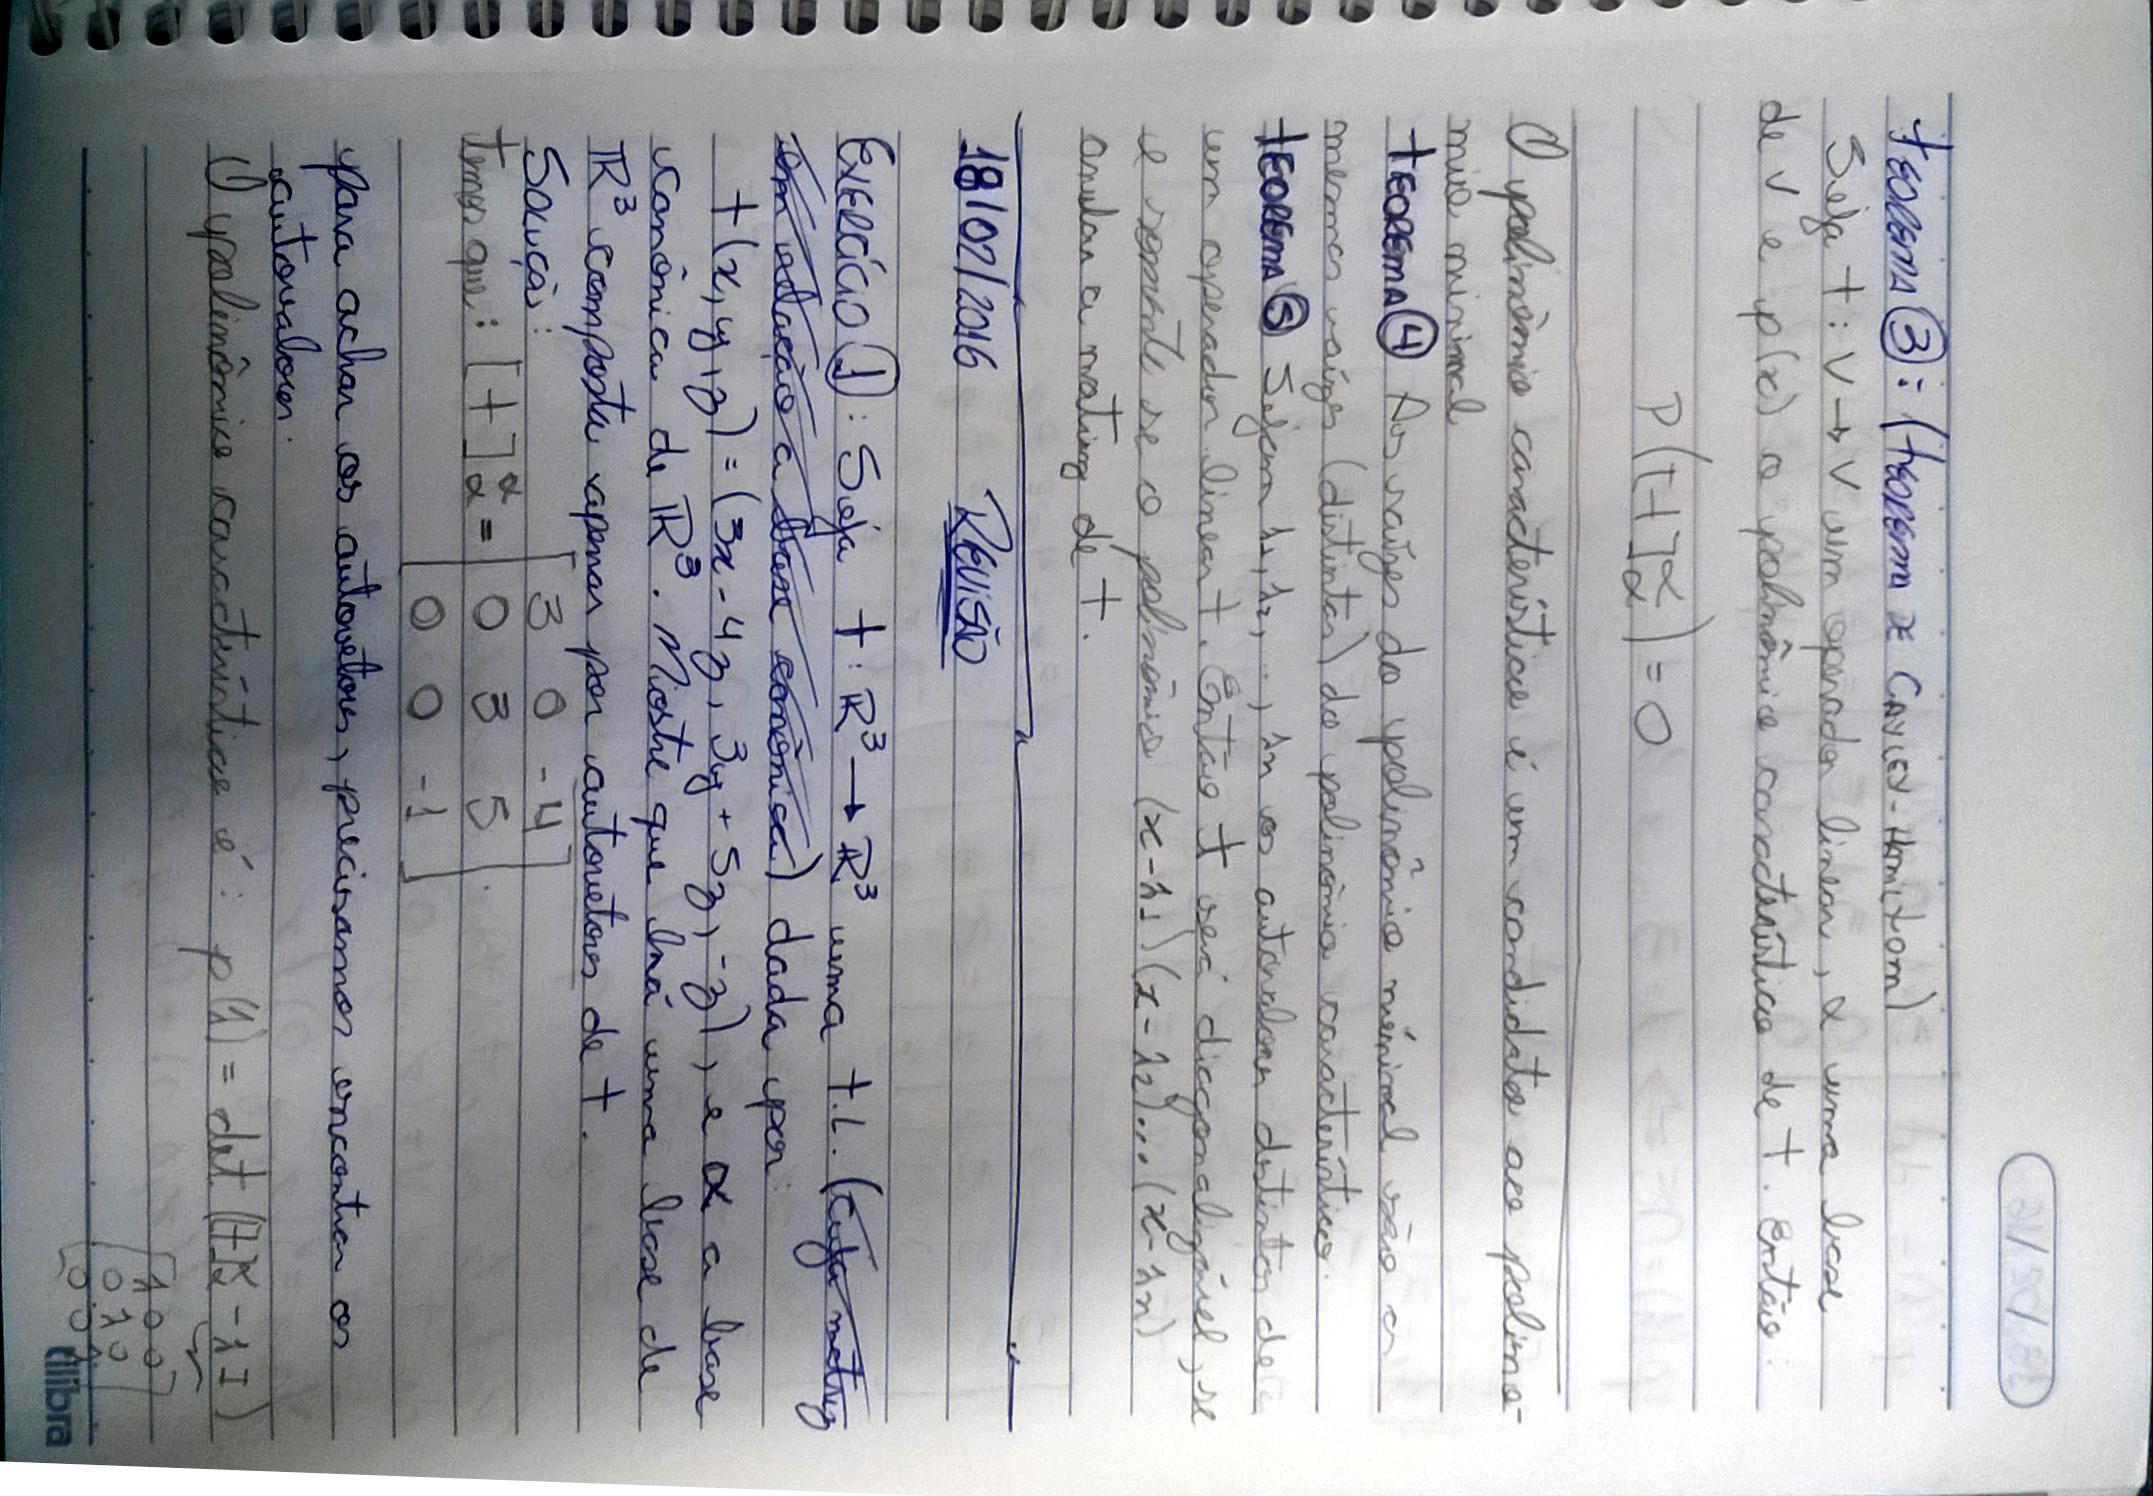 TEOREMA ③: (TEOREMA DE CAYLEY-HAMILTOM)
Seja T: V → V um operador linear, α uma base
de V e p(x) o polinômio característico de T. Então:
P([T]αα) = 0
O polinômio característico é um candidato ao polino-
mio minimal
TEOREMA ④ As raízes do polinômio minimal são as
mesmas raízes (distintas) do polinômio característico.
TEOREMA ⑤ Sejam λ1, λ2, ..., λn os autovalores distintos de
um operador linear T. Então T será diagonalizável, se
e somente se o polinômio (x-λ1)(x-λ2)...(x-λn)
anular a matriz de T.
18/02/2016 REVISÃO
EXERCÍCIO ①: Seja T: ℝ³ → ℝ³ uma T.L. (cuja matriz
em relação a base canônica) dada por:
T(x, y, z) = (3x - 4z, 3y + 5z, -z), e α a base
canônica de ℝ³. Mostre que há uma base de
ℝ³ composta apenas por autovetores de T.
Solução:
Temos que: [T]αα = [3 0 -4
0 3 5
0 0 -1].
para achar os autovetores, precisamos encontrar os
autovalores.
O polinômio característico é: p(λ) = det ([T]αα - λI)
[λ 0 0
0 λ 0
0 0 λ]
tilibra